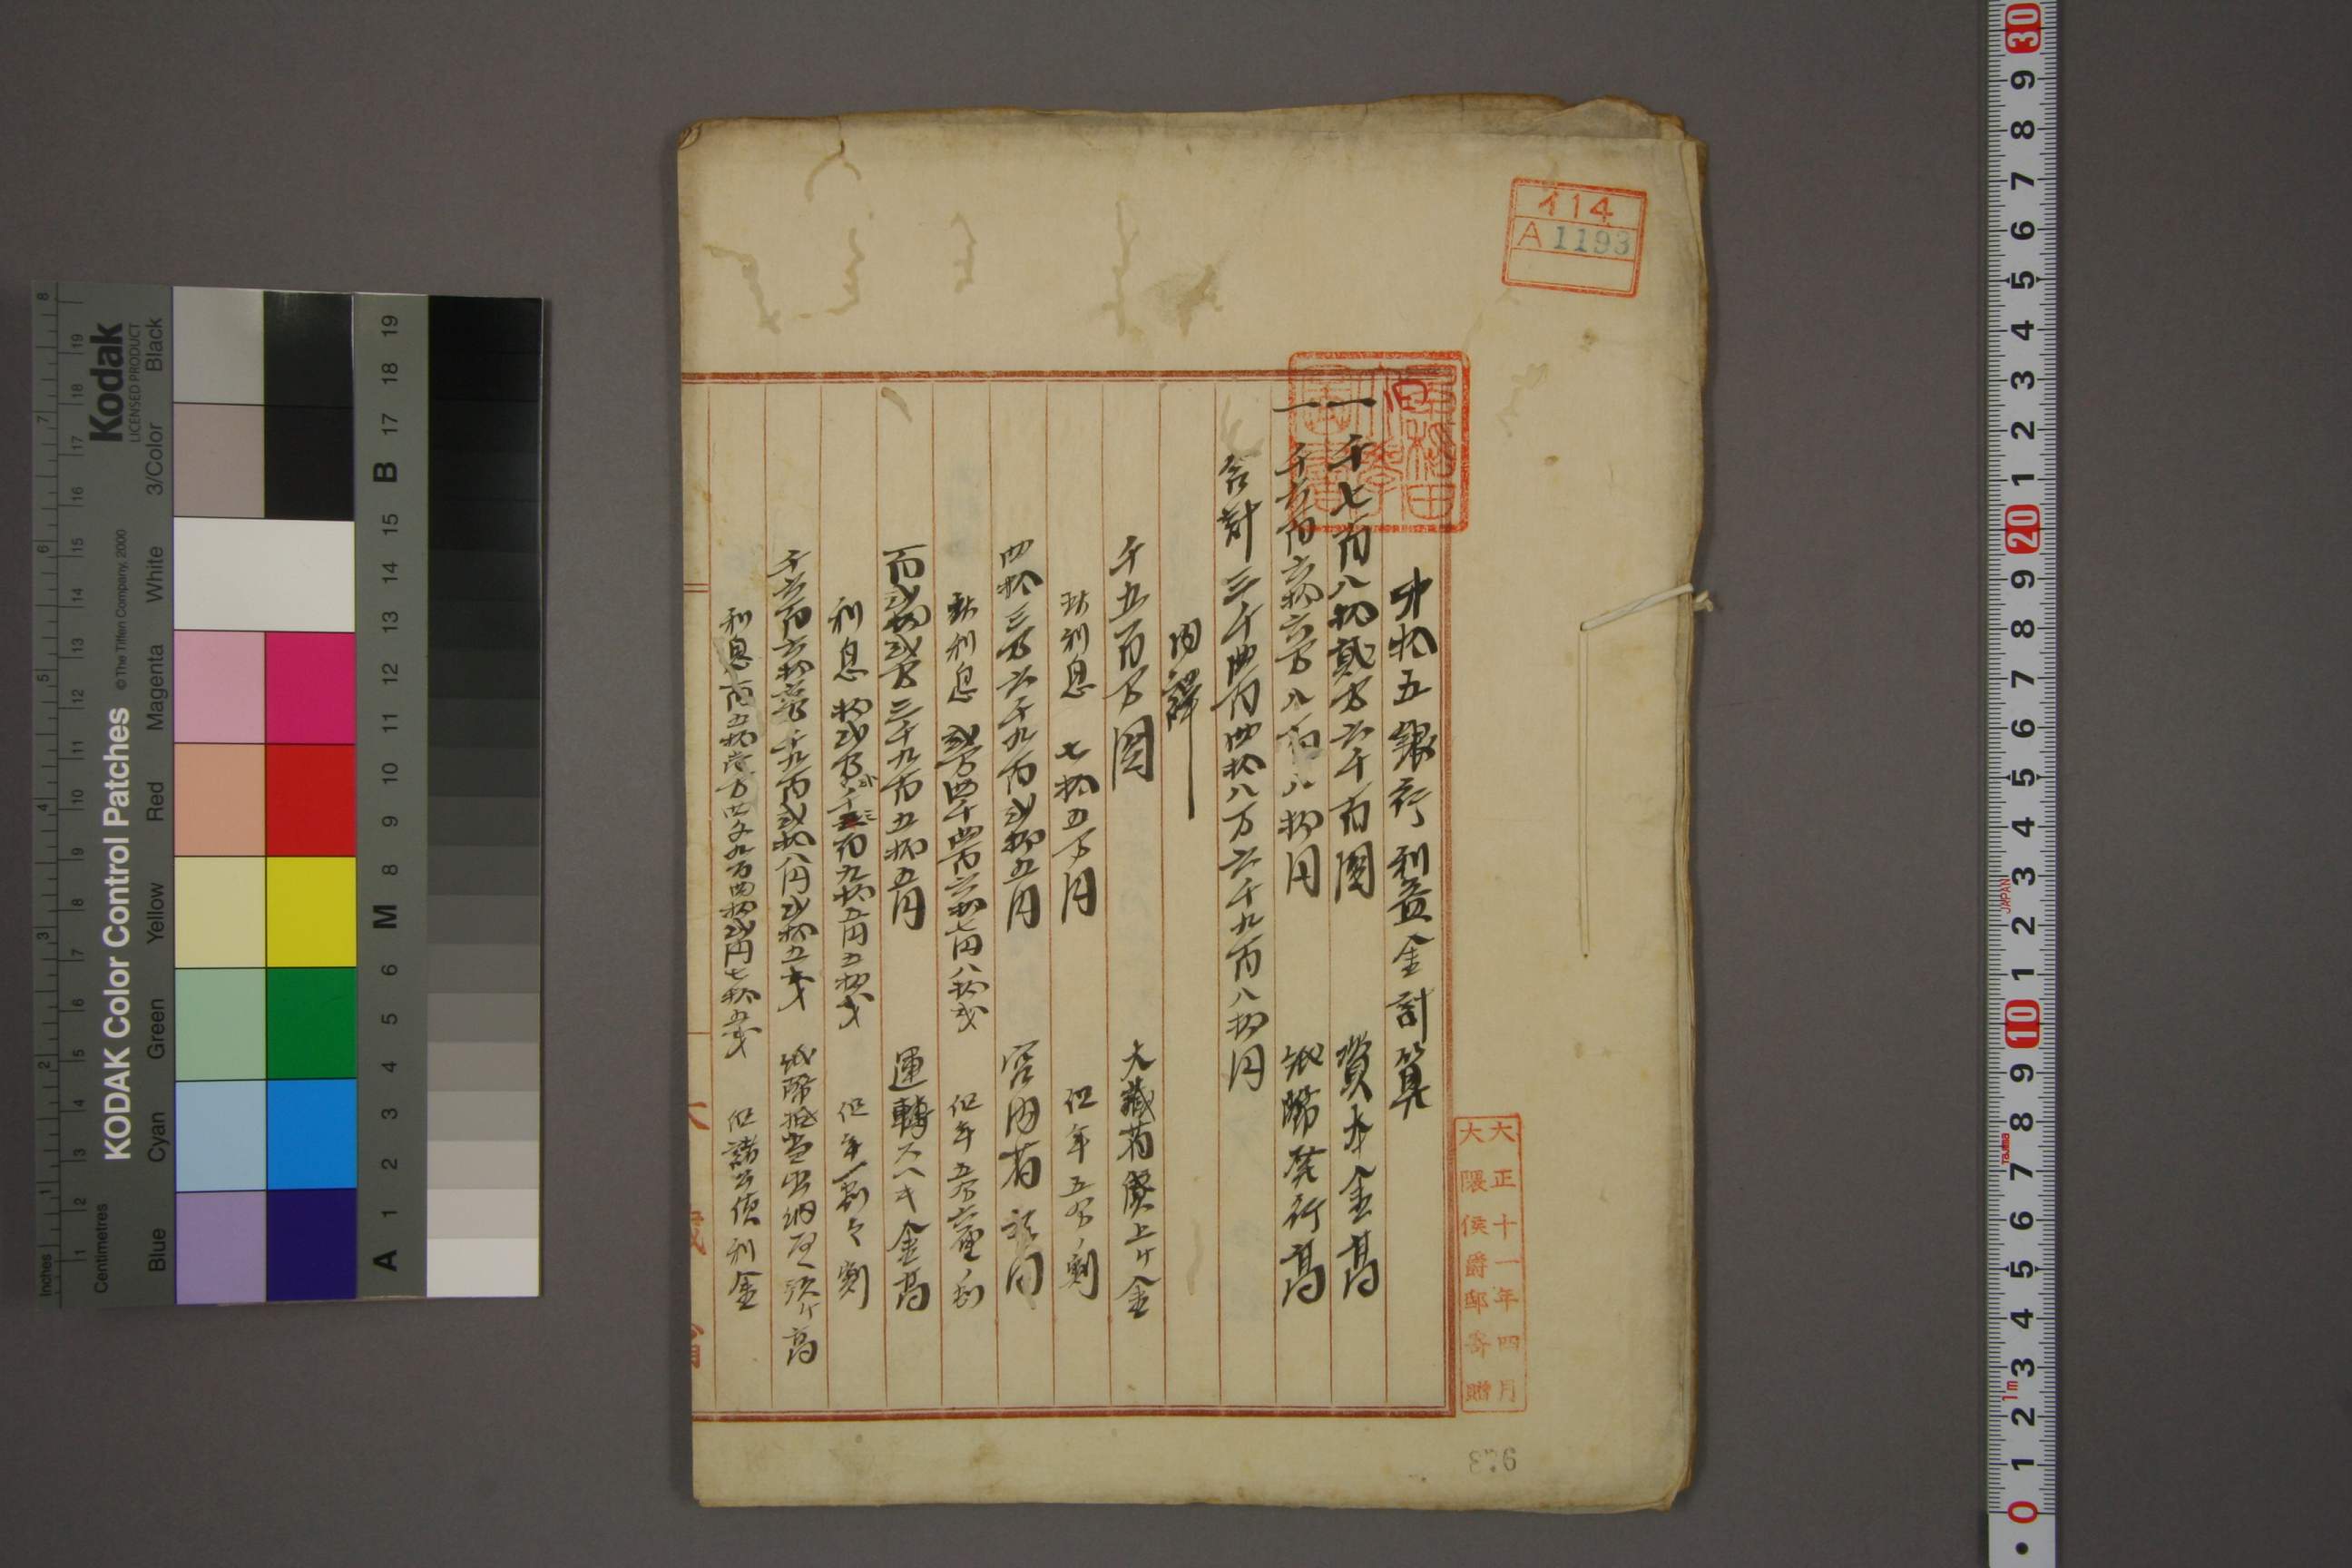 第拾五銀行利益金計算
一 千七百八拾貳万六千百圓 資本金高
一 千六百六拾六万八百八拾円 紙幣発行高
合計三千四百四拾八万六千九百八拾円
内譯
千五百万圓 大藏省貸上ケ金
此利息 七拾五万円 但年五分ノ割
四拾三万六千九百弐拾五円 宮内省
此利息 弐万四千四百六拾七円八拾戋 但年五分六厘ノ割
百弐拾弐万三千九百五拾五円 運轉スヘキ金高
利息 拾弐万弐千三百九拾五円五拾戋 但年一割ノ割
千六百六拾六万千九百弐拾八円弐拾五戋 紙幣抵当出納局預ケ高
但諸公債利金
大藏省
イ14
A1193
早稲田大学図書
大正十一年四月
大隈侯爵邸寄贈
Kodak
LICENSED PRODUCT
KODAK Color Control Patches
© The Tiffen Company, 2000
Blue Cyan Green Yellow Red Magenta White 3/Color Black
Inches 1 2 3 4 5 6 7 8
Centimetres
A 1 2 3 4 5 6 M 8 9 10 11 12 13 14 15 B 17 18 19
JAPAN
Tajima
1m
0 1 2 3 4 5 6 7 8 9 10 1 2 3 4 5 6 7 8 9 20 1 2 3 4 5 6 7 8 9 30